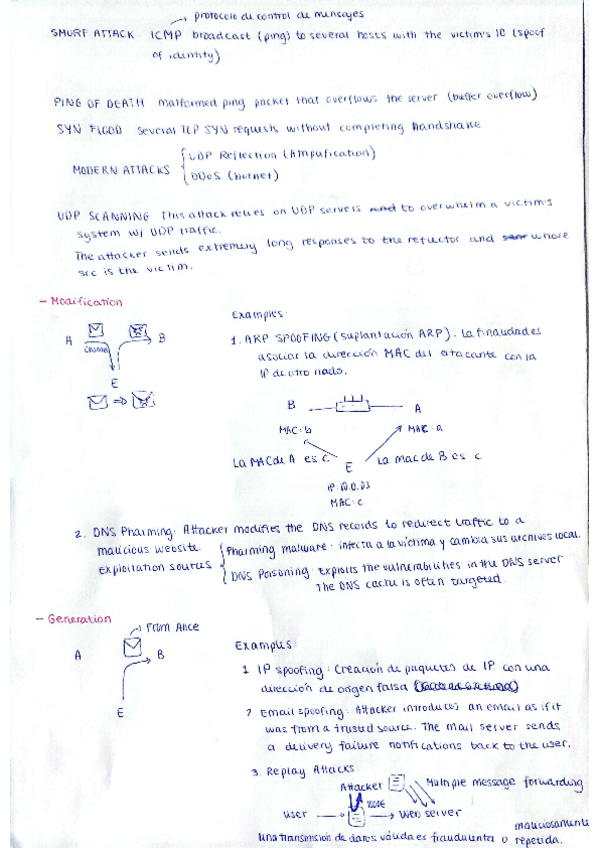 protocolo de control de mensajes
SMURF ATTACK ICMP broadcast (ping) to several hosts with the victim's IC (spoof
of identity)
PING OF DEATH malformed ping packet that overflows the server (buffer overflow)
SYN FLOOD several TCP SYN requests without completing handshake
MODERN ATTACKS
UDP Reflection (Amplification)
DDoS (botnet)
UDP SCANNING This attack relies on UDP servers to overwhelm a victim's
system w/ UDP traffic.
The attacker sends extremely long responses to the reflector and whose
src is the victim.
- Modification
A
Channel
B
E
Examples:
1. ARP SPOOFING (suplantación ARP). La finalidad es
asociar la dirección MAC del atacante con la
IP de otro nodo.
B
A
MAC: b
MAC: a
La MAC de A es c.
E
La mac de B es c
IP: 10.0.03
MAC: c
2. DNS Pharming: Attacker modifies the DNS records to redirect traffic to a
malicious website.
Exploitation sources
Pharming malware: infecta a la víctima y cambia sus archivos local.
DNS Poisoning: Exploits the vulnerabilities in the DNS server
The DNS cache is often targeted.
- Generation
From Alice
A
B
E
Examples:
1 IP spoofing: Creación de paquetes de IP con una
dirección de origen falsa
2 Email spoofing: Attacker introduces an email as if it
was from a trusted source. The mail server sends
a delivery failure notifications back to the user.
3. Replay Attacks
Attacker
Multiple message forwarding
user
Web server
maliciosamente
Una transmisión de datos válida es fraudulenta o repetida.